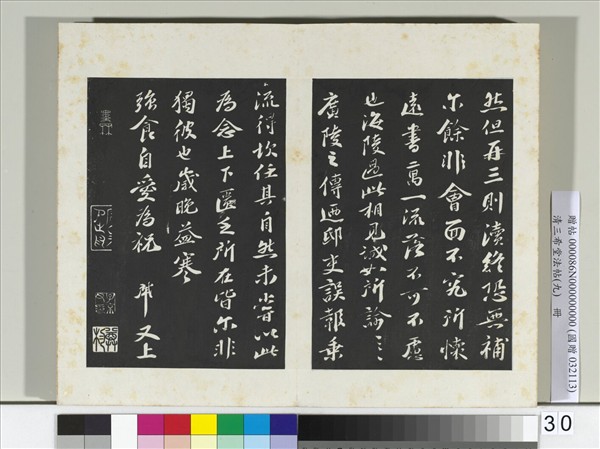 然但再三則瀆終恐無補
尔餘非會面不究所懷
遠書萬一流落不可不慮
也海陵過此相見誠如所諭
廣陵之傳迺邸吏誤報乘
流得坎任其自然未嘗以此
為念上下匱乏所在皆尔非
獨彼也歲晚益寒
強食自愛為祝 又上
贈帖 000086N00000000 (國贈 032113)
清三希堂法帖(九) 冊
30